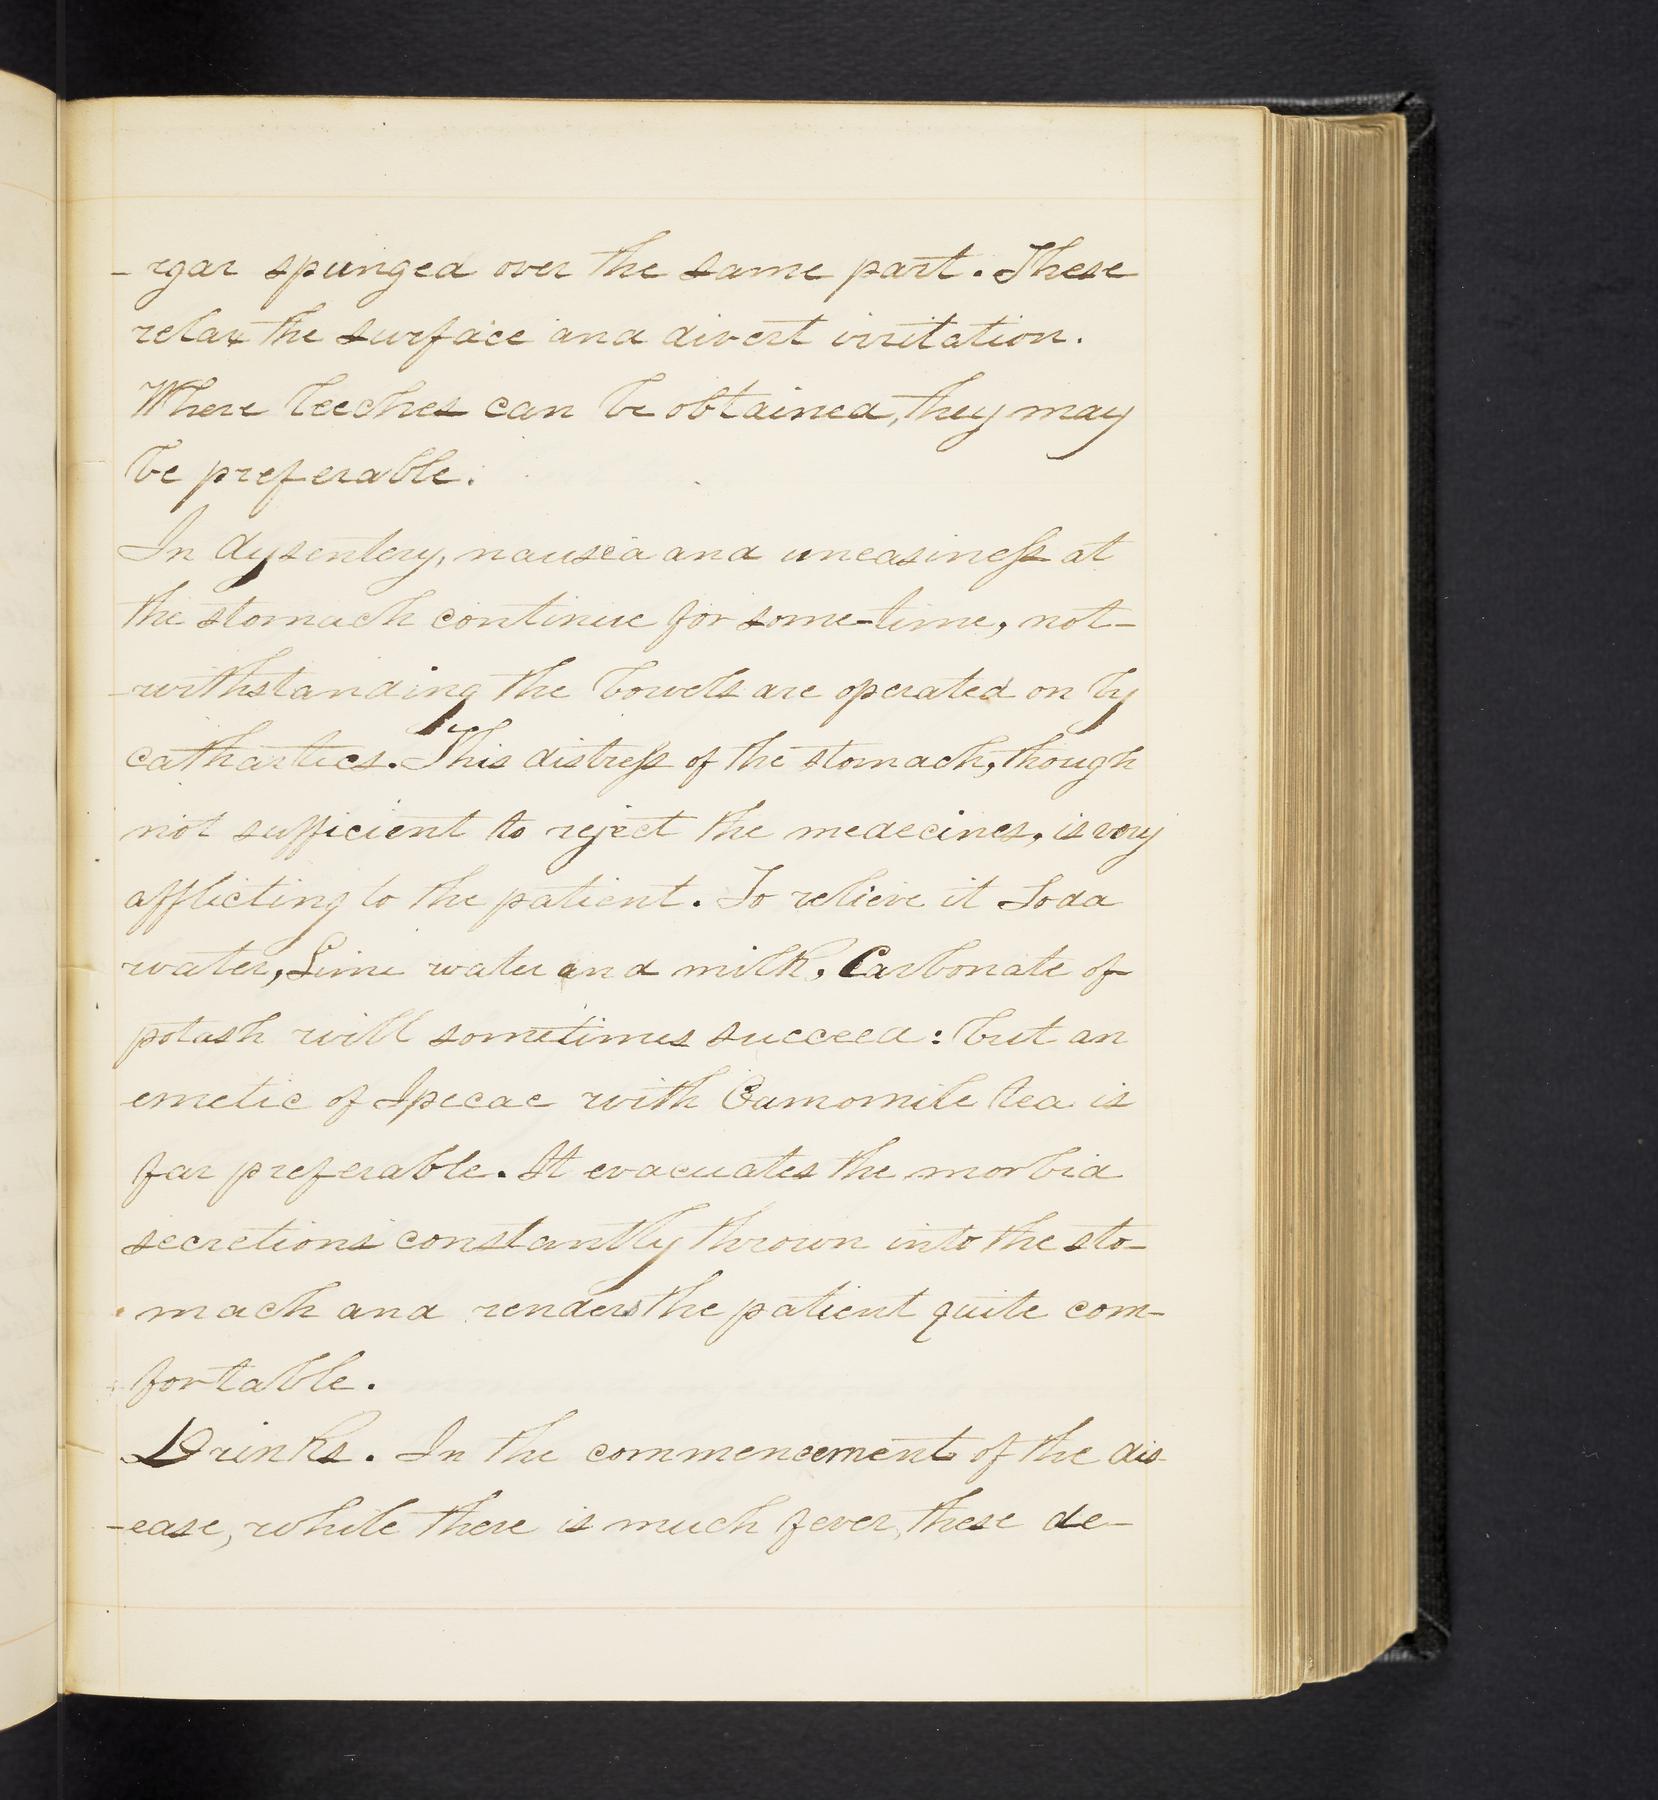 - rgar spunged over the same part. These
relax the surface and divert irritation.
Where leeches can be obtained, they may
be preferable.
In dysentery, nausea and uneasiness at
the stomach continue for some-time, not-
-withstanding the bowels are operated on by
cathartics. This distress of the stomach, though
not sufficient to reject the medecines, is very
afflicting to the patient. To relieve it Soda
water, Lime water and milk, Carbonate of
potash will sometimes succeed: but an
emetic of Ipecac with Camomile tea is
far preferable. It evacuates the morbid
secretions constantly thrown into the sto-
mach and renders the patient quite com-
fortable.
Drinks. In the commencement of the dis-
-ease, while there is much fever, these de-